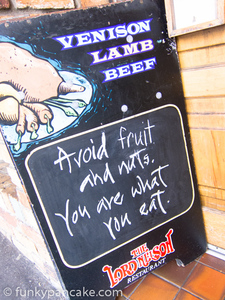 VENISON
LAMB
BEEF
Avoid fruit
and nuts.
You are what
you eat.
THE
LORD NELSON
RESTAURANT
© funkypancake.com